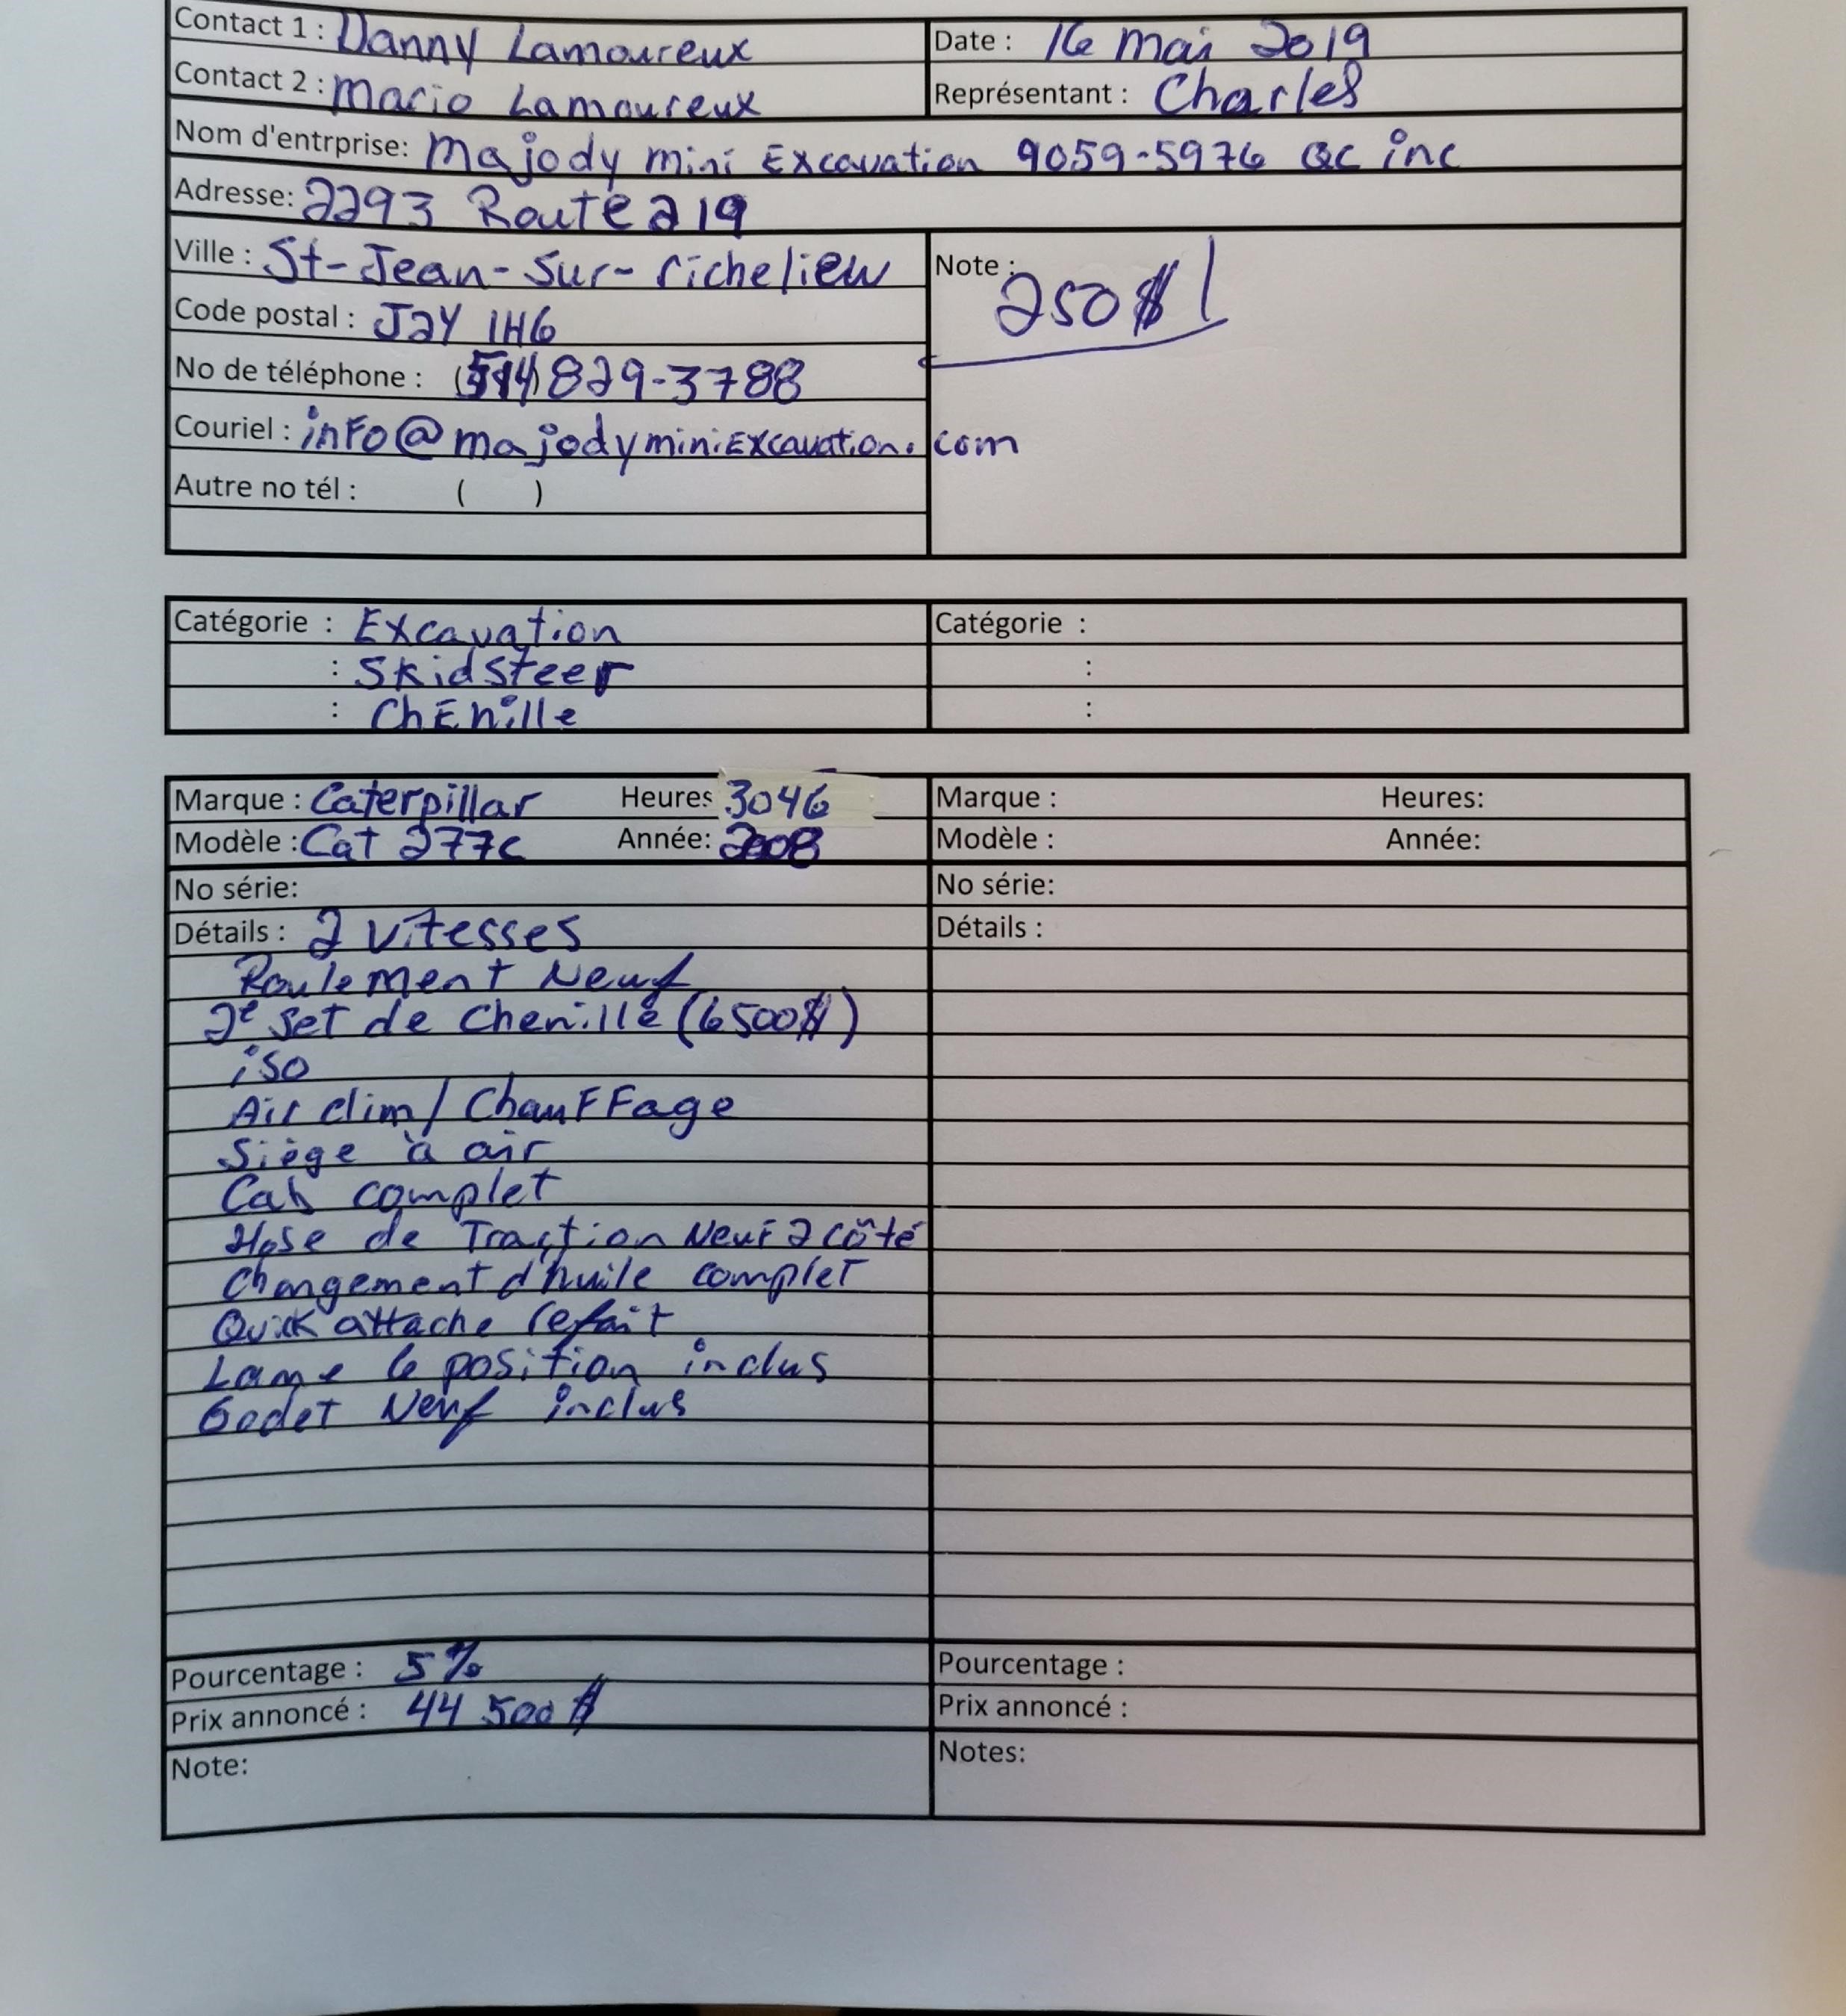 Contact 1 : Danny Lamoureux
Date : 16 mai 2019
Contact 2 : Mario Lamoureux
Représentant : Charles
Nom d'entrprise: Majody mini Excavation 9059-5976 QC inc
Adresse: 2293 Route 219
Ville : St-Jean-sur-richelieu
Note : 250$
Code postal : J2Y 1H6
No de téléphone : (514) 829-3788
Couriel : info@majodyminiExcavation.com
Autre no tél : ( )
Catégorie : Excavation
Catégorie :
: Skidsteer
:
: ChEnille
:
Marque : Caterpillar Heures 3046
Marque : Heures:
Modèle : Cat 277c Année: 2008
Modèle : Année:
No série:
No série:
Détails : 2 vitesses
Détails :
Roulement Neuf
2e set de Chenille (6500$)
iso
Air clim / Chauffage
Siège à air
Cab complet
Hose de Traction Neuf 2 côté
Changement d'huile complet
Quick attache refait
Lame 6 position inclus
Godet Neuf inclus
Pourcentage : 5%
Pourcentage :
Prix annoncé : 44 500 $
Prix annoncé :
Note:
Notes: